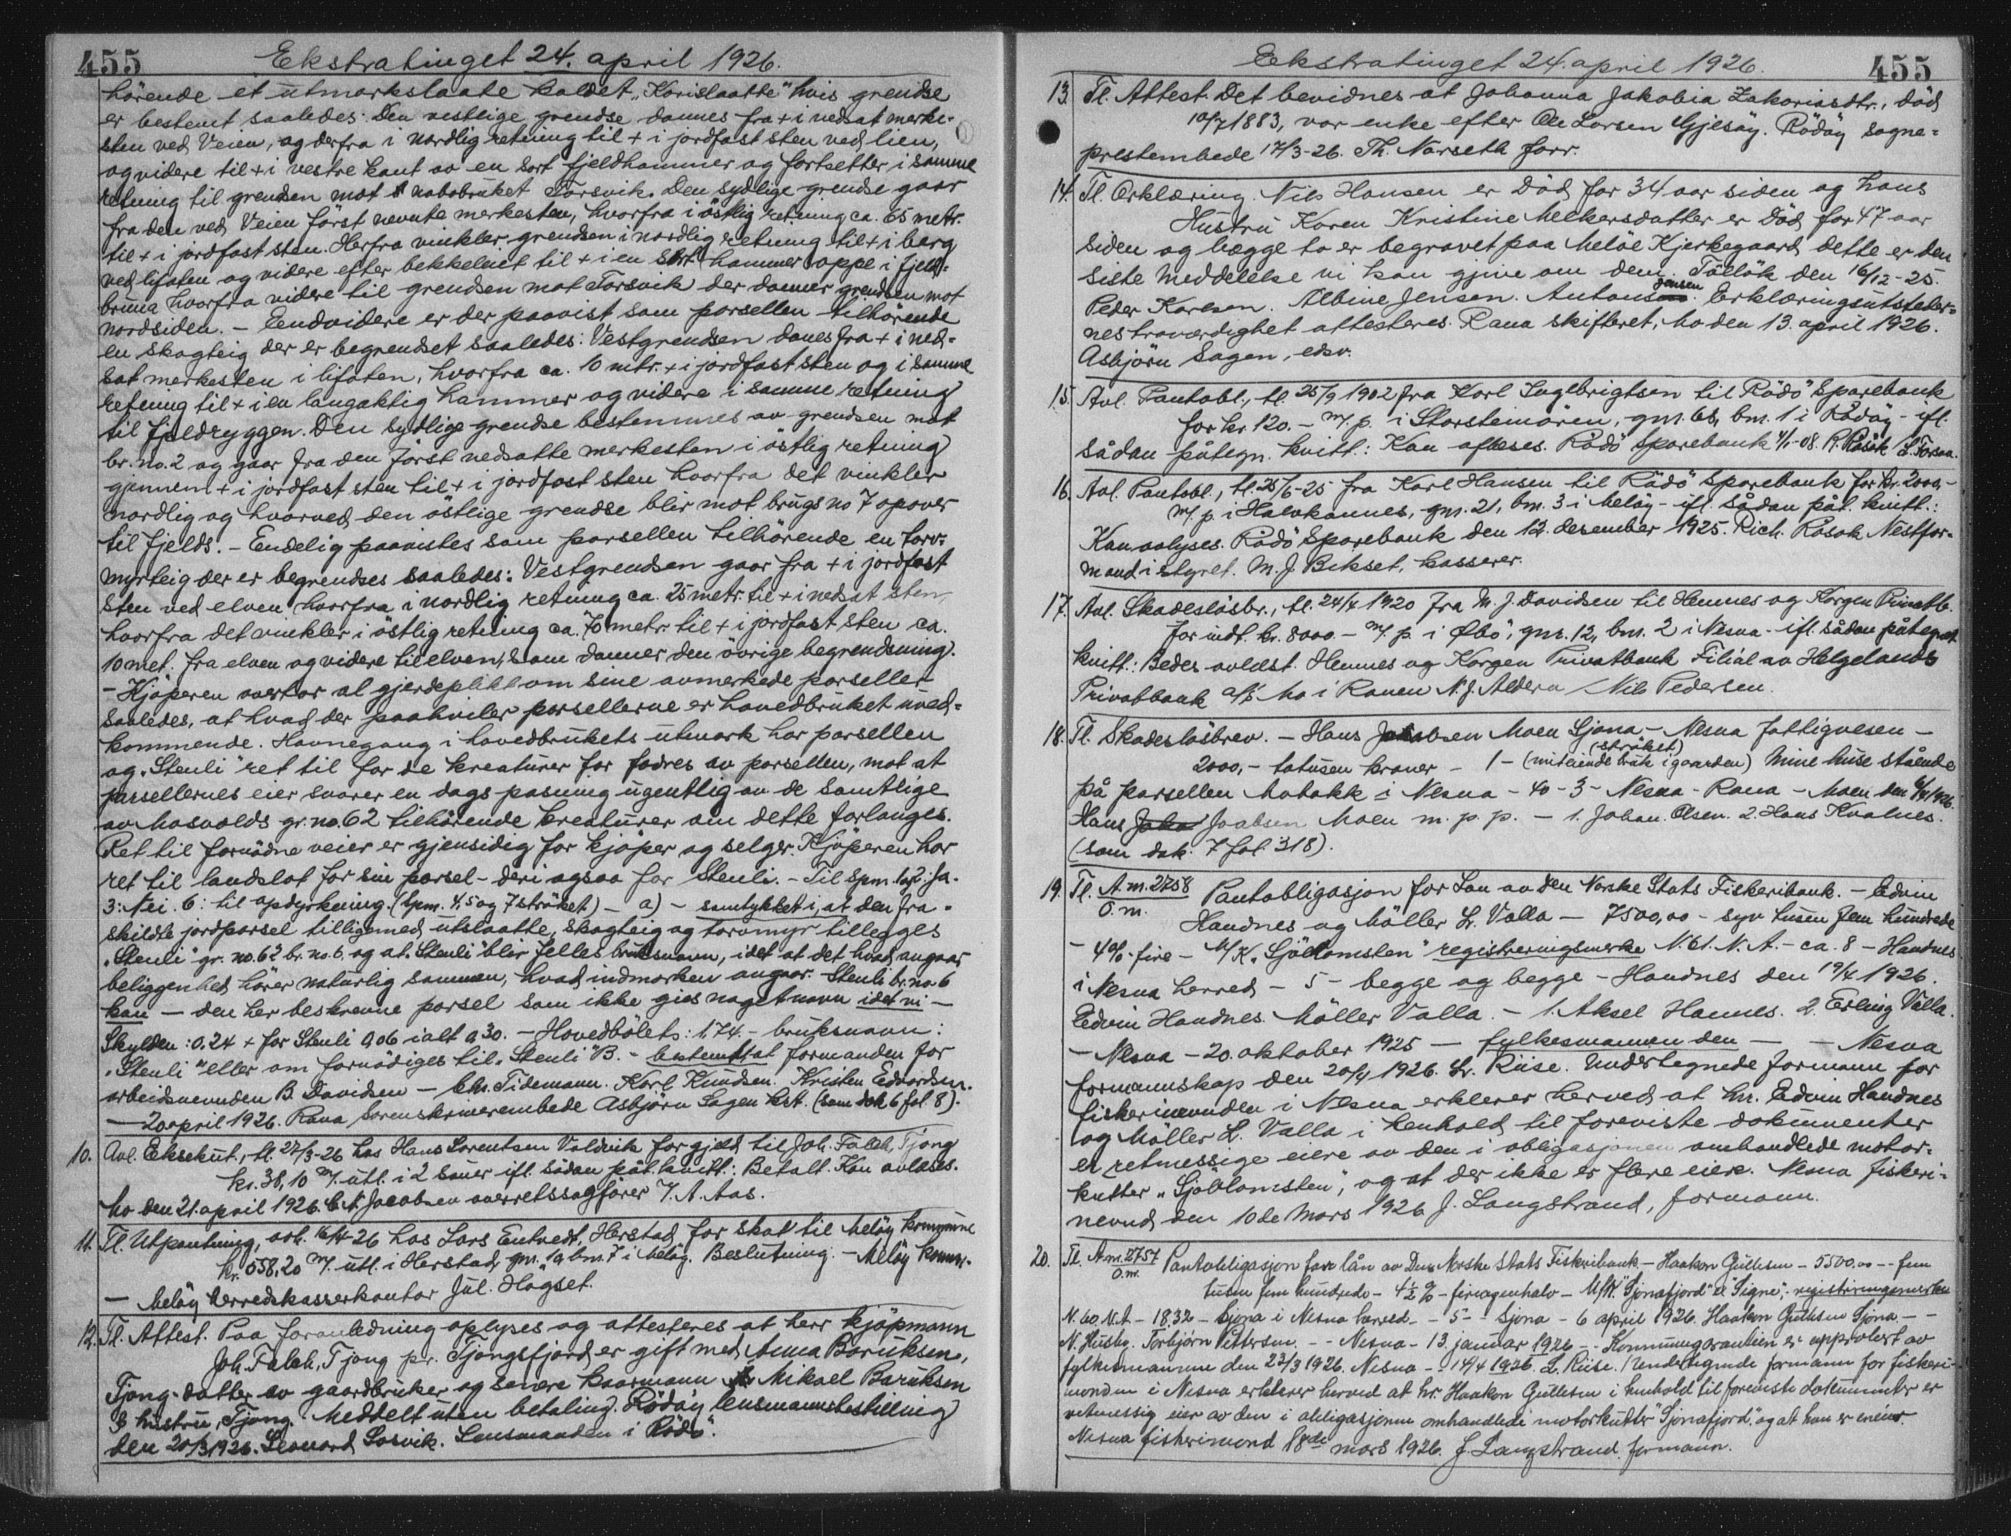 455
Ekstratinget 24. april 1926.
hörende et utmarkslaate kaldet "Korislaatte" hvis grendse
er bestemt saaledes: Den vestlige grendse dannes fra + i nedsat merke-
sten ved Veien, og derfra i nordlig retning til + i jordfast sten ved lien,
og videre til + i vestre kant av en sort fjeldhammer og fortsetter i samme
retning til grendsen mot nabobruket Forsvik. Den sydlige grendse gaar
fra den ved Veien först nevnte merkesten, hvorfra i östlig retning ca. 65 metr.
til + i jordfast sten. Herfra vinkler grendsen i nordlig retning til + i berg
ved lifoten og videre efter bekkeleiet til + i en sort hammer oppe i fjeld-
bruna hvorfra videre til grendsen mot Forsvik der danner grendsen mot
nordsiden. - Endvidere er der paavist som parsellen tilhörende
en skogteig der er begrendset saaledes: Vestgrendsen danes fra + i ned-
sat merkesten i lifoten, hvorfra ca. 10 mtr. + i jordfast sten og i samme
retning til + i en langaktig hammer og videre i samme retning
til fjeldryggen. Den sydlige grendse bestemmes av grendsen mot
br. no. 2 og gaar fra den först nedsatte merkesten i östlig retning
gjennem + i jordfast sten til + i jordfast sten hvorfra det vinkler
nordlig og hvorved den östlige grendse blir mot brugs no 7 opover
til fjelds. - Endelig paavistes som parsellen tilhörende en torv-
myrteig der er begrendses saaledes: Vestgrendsen gaar fra + i jordfast
sten ved elven hvorfra i nordlig retning ca. 25 metr. til + i nedsat sten,
hvorfra det vinkler i östlig retning ca. 70 metr. til + i jordfast sten ca.
10 met. fra elven og videre til elven, som danner den övrige begrendsning.
- Kjöperen overtar al gjerdeplikt om sine avmerkede parseller
saaledes, at hvad der paahviler parsellerne er hovedbruket uved-
kommende. Havnegang i hovedbrukets utmark har parsellen
og "Stenli" ret til for de kreaturer for fodres av parsellen, mot at
parsellernes eier svarer en dags pasning ugentlig av de samtlige
av Mosvolds gr. no. 62 tilhörende kreaturer om dette forlanges.
Ret til fornödne veier er gjensidig for kjöper og selger. Kjöperen har
ret til landslot for sin parsel - deri ogsaa for Stenli. - Til Spm. 1 og 2: Ja.
3: Nei. 6: til opdyrkning. (Spm. 4, 5 og 7 ströket) - a) - samtykket i, at den fra-
skildte jordparsel tilligemed utslaatte, skogteig og torvmyr tillegges
"Stenli" gr. no. 62 br. no. 6, og at "Stenli" blir felles bruksnavn, idet at det hvad angaar
beliggenhed hörer naturlig sammen, hvad indmarken angaar. Stenli br. no 6
kan - den her beskrevne parsel som ikke gies noget navn idet vi -
Skylden: 0.24 + for Stenli 0,06 ialt 0,30. - Hovedbölets: 1.74. - bruksnavn:
"Stenli" eller om fornödiges til "Stenli" B. - bestemt at formanden for
arbeidsnevnden B. Davidsen - Chr. Tidemann. Karl Knudsen. Kristen Edvardsen.
- 20 april 1926. Rana sorenskriverembede Asbjörn Sagen kst. (som dok 6 fol. 8).
10. Avl. Eksekut., tl. 27/3-26 hos Hans Lorentsen Valdvik for gjæld til Joh. Falch, Tjong
kr. 38,10 m/ utl. i 2 sauer ifl. sådan påt. kvitt.: Betalt. Kan avlæses.
Mo den 21. april 1926. C. N. Jacobsen overretssagförer / A. Aas.
11. Tl. Utpantning, avh. 16/4-26 hos Lars Entvedt, Herstad for skat til Melöy kommune
kr. 058,20 m/ utl. i Herstad, gnr. 19 bnr. 7 i Melöy. Beslutning. - Melöy komm.
- Melöy herredskasserkontor Jul. Hagset.
12. Tl. Attest. Paa foranledning oplyses og attesteres at herr kjöpmann
Joh. Falch, Tjong pr. Tjongsfjord er gift med Anna Baruksen,
Tjong. datter av gaardbruker og senere kaarmann Mikael Baruksen
& hustru, Tjong. Meddelt uten betaling. Rödöy lensmannsbestilling
den 20/3 1926. Leonard Sosvik. Lensmanden i Rödö.
455
Ekstratinget 24. april 1926.
13. Tl. Attest. Det bevidnes at Johanna Jakobia Zakariasdtr., död
10/7 1883, var enke efter Ole Larsen Gjesöy. Rödöy sogne-
prestembede 17/3-26. Th. Narseth forr.
14. Tl. Erklæring. Nils Hansen er Död for 34 aar siden og hans
Hustru Karen Kristine Meckersdatter er Död for 47 aar
siden og begge to er begravet paa Melöe Kjerkegaard dette er den
siste Meddelelse vi kan gjive om dem. den 16/12-25.
Peder Karlsen. Albine Jensen. Anton Jensen. Erklæringsutsteler-
nes troverdighet attesteres. Rana skifteret, Mo den 13. april 1926.
Asbjörn Sagen, edsv.
15. Avl. Pantobl., tl. 25/9 1902 fra Karl Ingebrigtsen til Rödö Sparebank
for kr 120. - m/ p. i Storsteinören, gnr. 65, bnr. 1 i Rödöy - ifl.
sådan påtegn. kvitt.: Kan aflæses. Rödö Sparebank 4/1-08. R. Råsök / L. Forsaa.
16. Avl. Pantobl., tl. 25/6-25 fra Karl Hansen til Rödö Sparebank for kr. 2000,-
m/ p. i Halvkannes, gnr. 21, bnr. 3 i Melöy - ifl. sådan påt. kvitt.:
Kan avlyses. Rödö Sparebank den 12. desember 1925. Rich. Råsok Nestfor-
mand i styret. M. J. Bekset, kasserer.
17. Avl. Skadeslösbr., tl. 24/4 1920 fra M. J. Davidsen til Hemnes og Korgen Privatb.
for indt. kr. 8000 - m/ p. i Øbö, gnr. 12, bnr. 2 i Nesna - ifl. sådan påtegnet
kvitt.: Bedes avlæst. Hemnes og Korgen Privatbank Filial av Helgelands
Privatbank a/s Mo i Ranen N. J. Aldern / Nils Pedersen.
18. Tl. Skadeslösbrev. - Hans Jakobsen Moen Sjona - Nesna fattigvesen -
2000,- totusen kroner - 1 - (mitaende bruk i gaarden) (ströket) Mine huse stående
på parsellen Mobakk i Nesna - 40 - 3 - Nesna - Rana - Moen den 6/4 1926.
Hans Joabsen Moen m. p. p. - 1. Johan Olsen. 2. Hans Kvalnes.
(som dok. 7 fol 318).
19. Tl. A.m. 2758 / O.m. Pantobligasjon for Lån av den Norske Stats Fiskeribank. - Edvin
Handnes og Möller L. Valla - 7500,00 - syv tusen fem hundrede
- 4 % - fire - M/K. "Sjöblomsten" registreringsmerke N. 61. N. A. - ca. 8 - Handnes
i Nesna herred - 5 - begge og begge - Handnes den 19/4 1926.
Edvin Handnes. Möller Valla. - 1. Aksel Hannes. 2. Erling Valla.
- Nesna - 20. oktober 1925 - fylkesmannen den - - Nesna
formannskap den 20/4 1926. Lr. Riise. Undertegnede formann for
fiskerinevnden i Nesna erklerer herved at hr. Edvin Handnes
og Möller L. Valla i henhold til foreviste dokumenter
er retmessige eiere av den i obligasjonen omhandlede motor-
kutter "Sjöblomsten", og at der ikke er flere eiere. Nesna fiskeri-
nevnd den 10de Mars 1926 J. Langstrand, formann.
20. Tl. A.m. 2757 / O.m. Pantobligasjon for lån av Den Norske Stats Fiskeribank - Haakon Gullesen - 5500,00 - fem
tusen fem hundrede - 4 1/2 % - fireogenhalv - M/K. "Sjonafjord" ex "Signe", - registreringsmerke
N. 60. N. A. - 18,32 - Sjona i Nesna herred - - 5 - - Sjona - 6 april 1926. Haakon Gullesen Sjona. - -
N. Husby. Torbjörn Pettersen. - - Nesna - 13. januar 1926 - Kommunegarantien er approbert av
fylkesmannen den 23/3 1926. Nesna - 14/4 1926. L. Riise. / Undertegnede formann for fiskeri-
nevnden i Nesna erklærer herved at hr. Haakon Gullesen i henhold til foreviste dokumenter er
retmessig eier av den i obligasjonen omhandlede motorkutter "Sjonafjord" og at han er eneeier.
Nesna fiskerinevnd 18de mars 1926. J. Langstrand. formann.